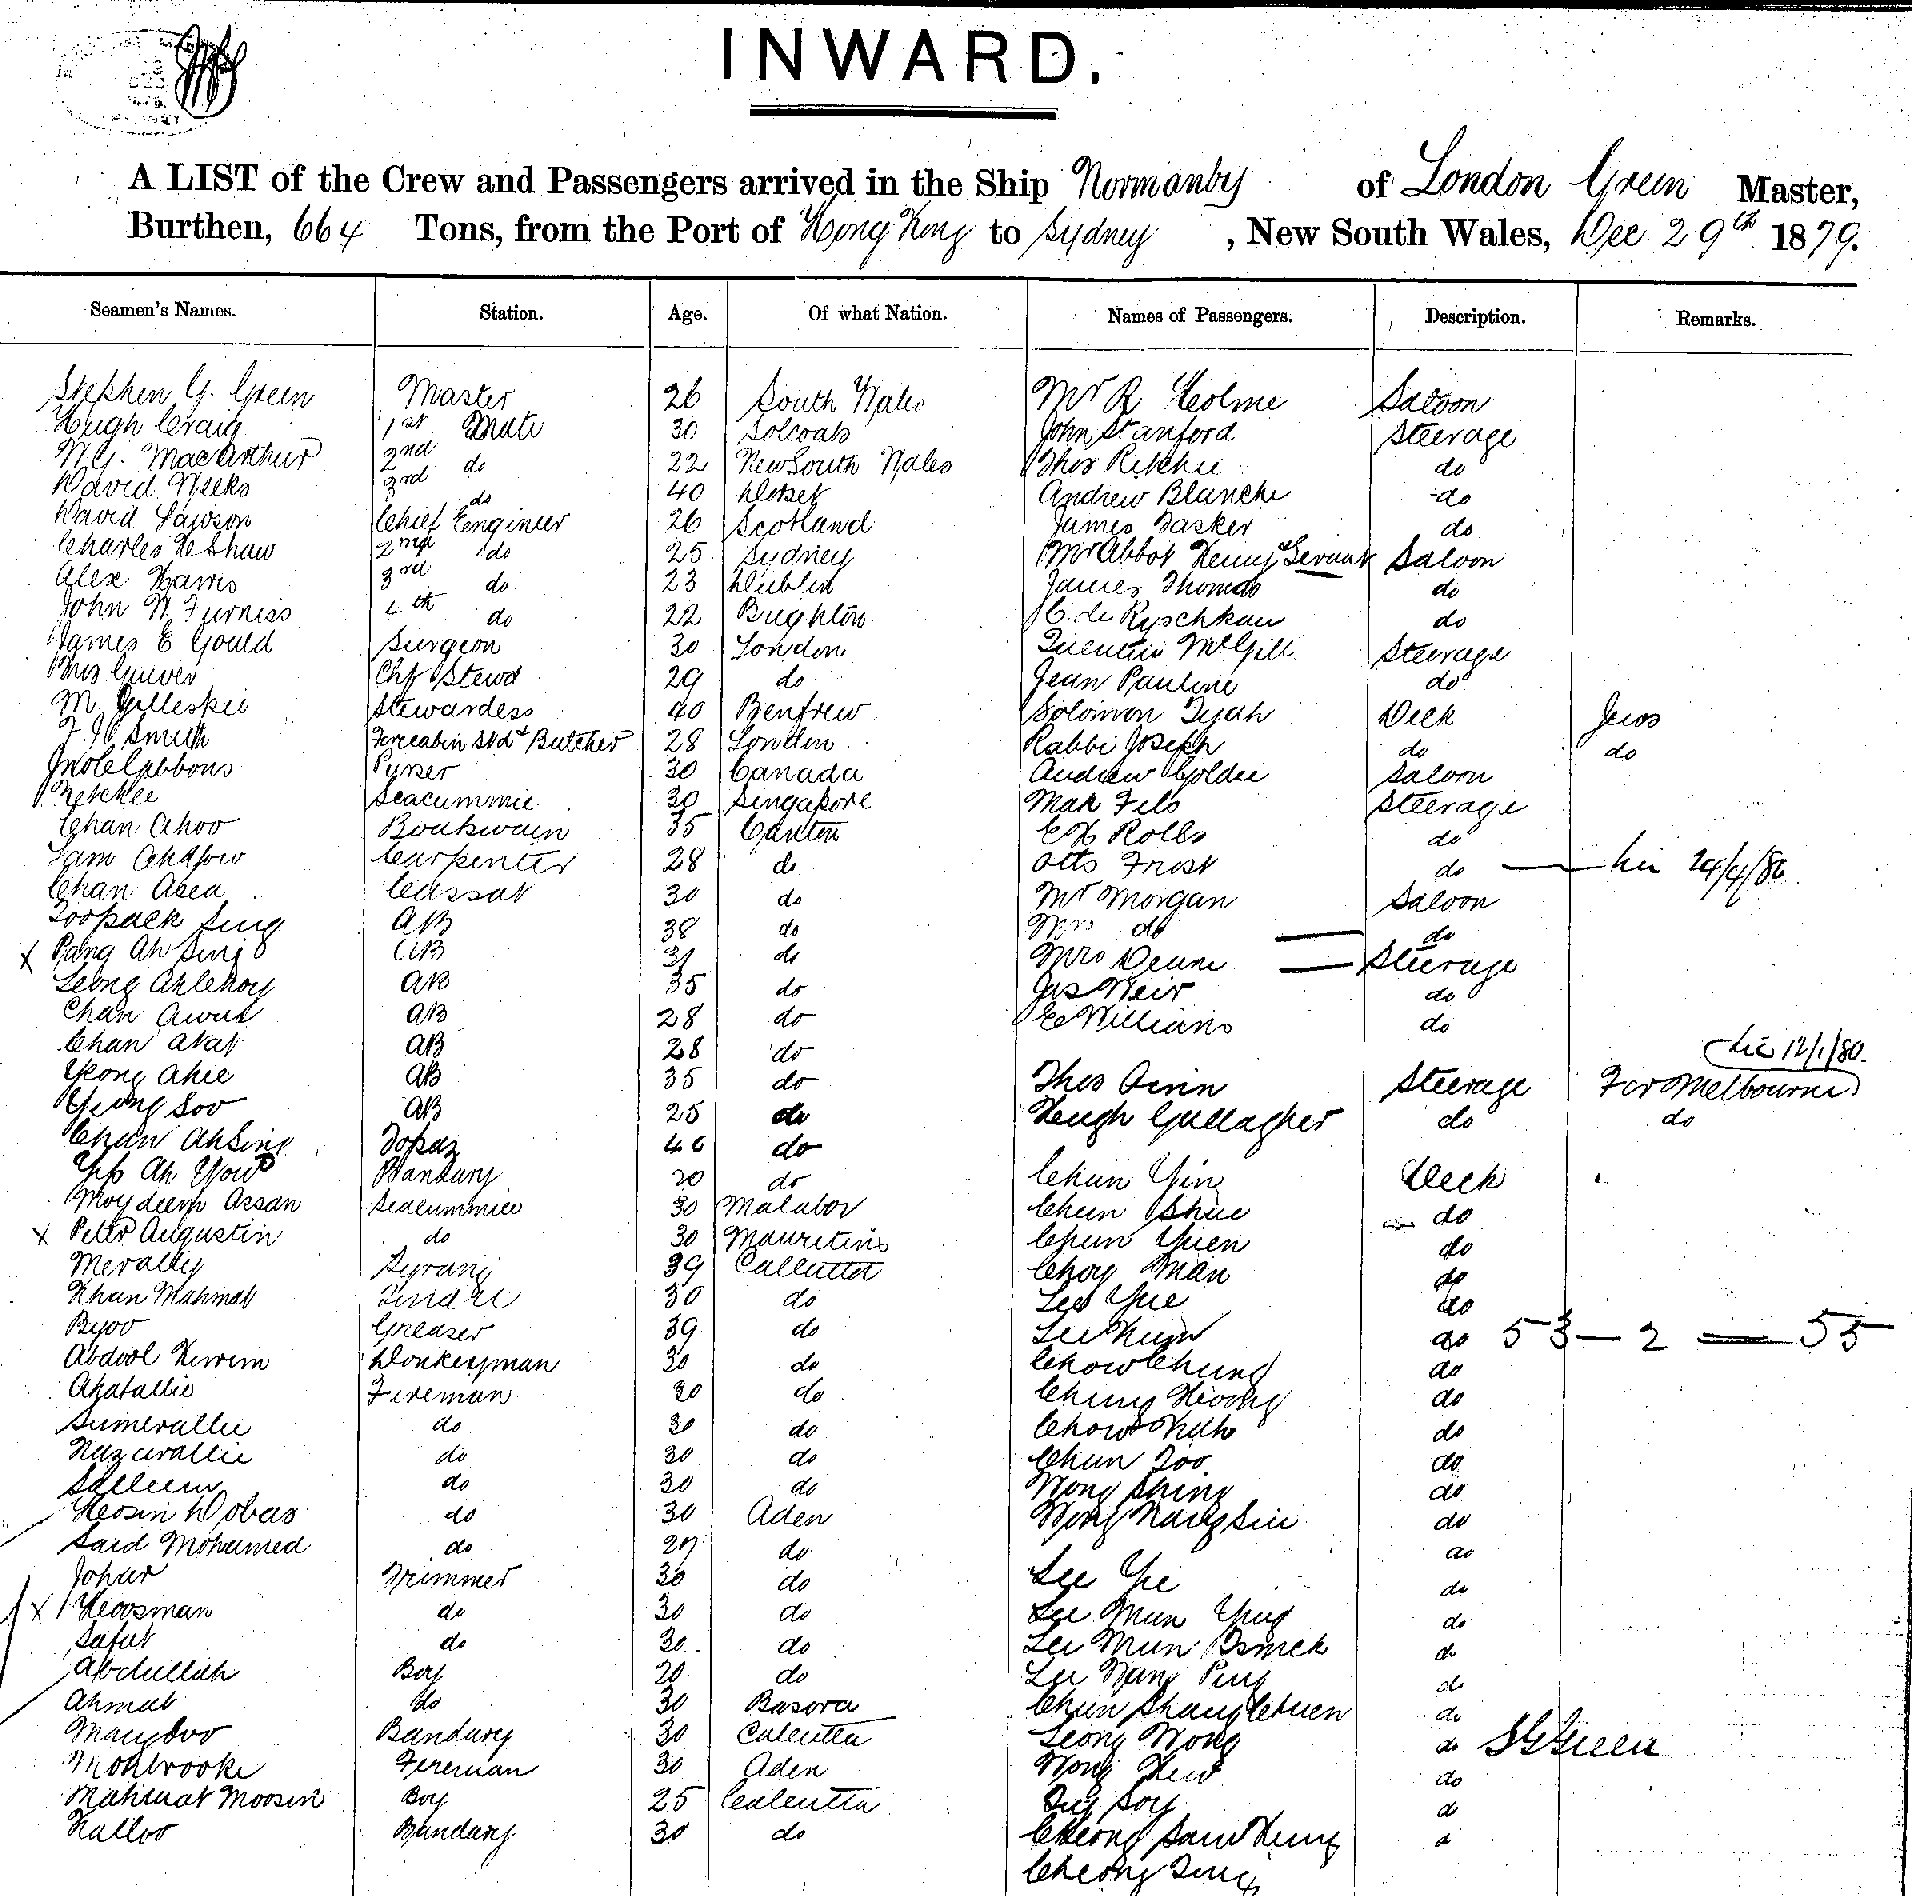 INWARD.
A LIST of the Crew and Passengers arrived in the Ship Normanby of London Green Master,
Burthen, 664 Tons, from the Port of Hong Kong to Sydney, New South Wales, Dec 29th 1879.
Seamen's Names. Station. Age. Of what Nation. Names of Passengers. Description. Remarks.
Stephen G. Green Master 26 South Wales Mr R Holme Saloon
Hugh Craig 1st Mate 30 John Stanford Steerage
W.G. MacArthur 2nd do 22 New South Wales Thos Ritchie do
David Weeks 3rd do 40 Dorset Andrew Blanche do
David Lawson Chief Engineer 26 Scotland James Basker do
Charles Shaw 2nd do 25 Sydney Mr Abbot Henry & Servant Saloon
Alex Harris 3rd do 23 Dublin James Thomas do
John W Furniss 4th do 22 Brighton C. de Ryschkau do
James E Gould Surgeon 30 London Quentin McGill Steerage
Chf Stewd 29 do Jean Pauline do
M. Gillespie Stewardess 40 Renfrew Solomon Deck Jews
Smith Forecabin Std & Butcher 28 London Rabbi Joseph do do
Jno Gibbons Purser 30 Canada Andrew Goldie Saloon
Seacunnie 30 Singapore Mak Fels Steerage
Chan Ahoo Boatswain 35 Canton Rolls do
Carpenter 28 do Otto Frost do
Chan Asea Cassab 30 do Mr Morgan Saloon
Sing AB 38 do Mrs do do
x Pang Ah Sing AB 31 do Mrs Deane Steerage
Leong AB 35 do Jas Weir do
Chan AB 28 do E Williams do
Chan Akat AB 28 do 12/1/80.
Yeong Ahee AB 35 do Thos Steerage For Melbourne
Yeong Soo AB 25 do Hugh Gallagher do do
Chan Ah Sing Topaz 46 do
Yip Ah Yow Bandary 30 do Chun Yin Deck
Moydeen Assan Seacunnie 30 Malabar Chun Shue do
x Peter Augustin do 30 Mauritius Chun Yuen do
Merally Syrang 39 Calcutta Choy Man do
Khan Mahmat Tindal 30 do Lee Yue do
Byoo Greaser 39 do Lee do 53 — 2 — 55
Abdool Kerrem Donkeyman 30 do Chow Chung do
Akatallie Fireman 30 do Chung do
Sumerallie do 30 do Chow do
Nazurallie do 30 do Chun Too do
Salleem do 30 do Wong Shing do
do 30 Aden Wong do
Said Mohamed do 27 do do
Johur Trimmer 30 do Lee Ye do
x Hoosman do 30 do Lee Mun do
Safut do 30 do Lee Mun do
Abdullah Boy 20 do Lee do
Ahmat do 30 Basora Chun do
Mangdoo Bandary 30 Calcutta Leong Wong do S G Green
Mohbrooke Fireman 30 Aden Wong do
Mahmat Moosin Boy 25 Calcutta do
Kalloo Bandary 30 do Cheong do
Cheong